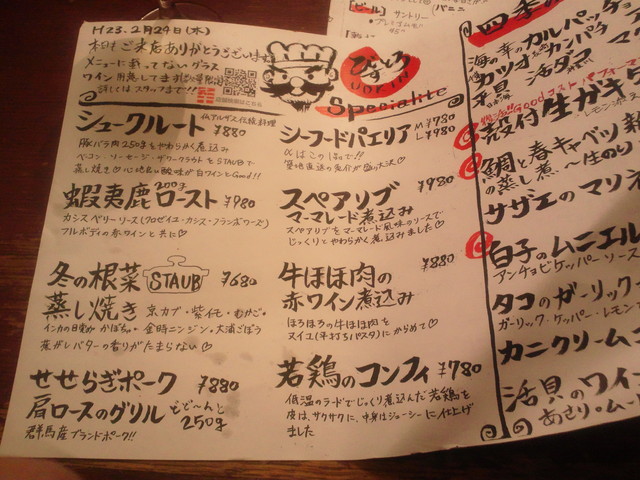 H23.2月24日(木)
本日もご来店ありがとうございます
メニューに載ってないグラス
ワイン用意してます
詳しくはスタッフまで!!!
びすとろ
UOKIN
Specialite
シュークルート ¥880
仏アルザス伝統料理
豚バラ肉250gをやわらかく煮込み
ベーコン・ソーセージ・ザワークラウトをSTAUBで
蒸し焼き♡心地良い酸味が白ワインとGood!!
蝦夷鹿200gロースト ¥980
カシスベリーソース(クロゼイユ・カシス・フランボワーズ)
フルボディの赤ワインと共に♡
冬の根菜 STAUB ¥680
蒸し焼き 京カブ・紫イモ・むかご・
インカの目覚め かぼちゃ・金時ニンジン・大浦ごぼう
焦がしバターの香りがたまらない♡
せせらぎポーク ¥880
肩ロースのグリル どど〜んと250g
群馬産ブランドポーク!!
シーフードパエリア M¥780
L¥980
築地直送の魚介が盛り沢山♡
スペアリブ ¥980
マーマレード煮込み
スペアリブをマーマレード風味のソースで
じっくりとやわらかく煮込みました♡
牛ほほ肉の ¥880
赤ワイン煮込み
ほろほろの牛ほほ肉を
ヌイユ(平打ちパスタ)にからめて♡
若鶏のコンフィ ¥780
低温のラードでじっくり煮込んだ若鶏を
皮は、サクサクに、中身はジューシーに仕上げ
ました
[ビール] サントリー
・プレミアムモ
パニーニ
四季の
海の幸のカルパッチョ
カツオ カンパチ
平貝 活ダコ マ
Good コストパフォーマ
殻付生ガキ
レモン
鯛と春キャベツ
の蒸し煮 〜生のり
サザエのマリネ
白子のムニエル
アンチョビケッパーソース
タコのガーリック
ガーリック・ケッパー・レモン
カニクリームコ
活貝のワイン
あさり・ムー